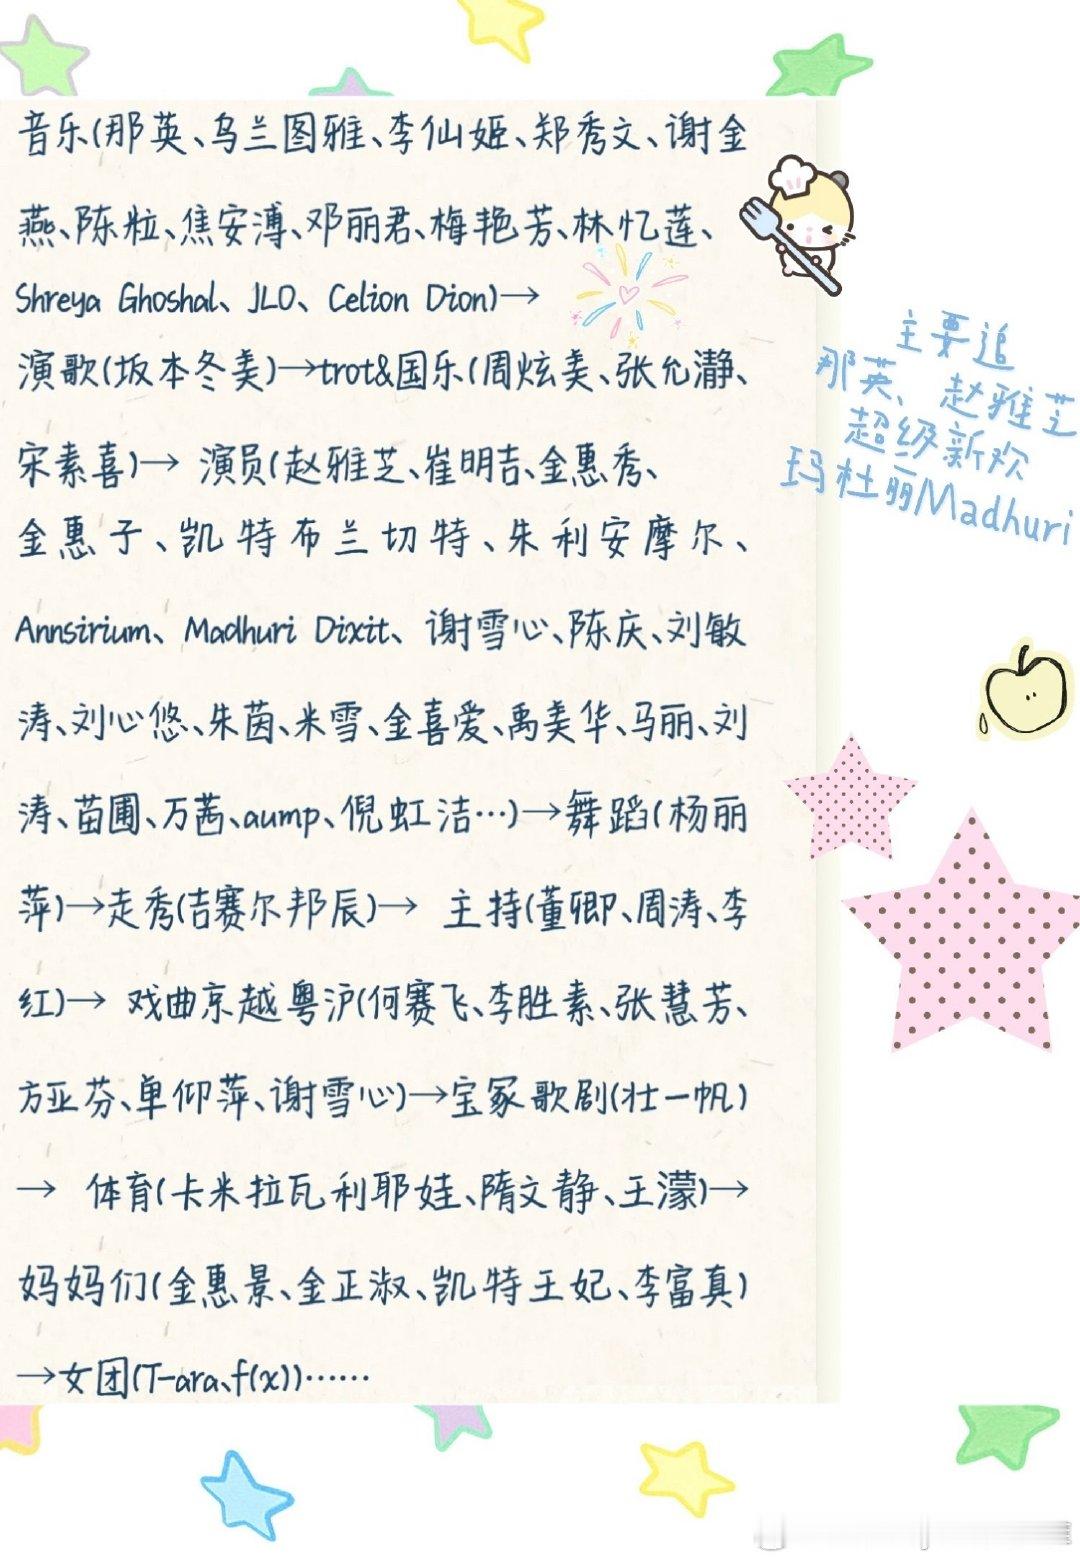 音乐(那英、乌兰图雅、李仙姬、郑秀文、谢金
燕、陈粒、焦安溥、邓丽君、梅艳芳、林忆莲、
Shreya Ghoshal、JLO、Celion Dion)→
演歌(坂本冬美)→trot&国乐(周炫美、张允瀞、
宋素喜)→ 演员(赵雅芝、崔明吉、金惠秀、
金惠子、凯特布兰切特、朱利安摩尔、
Annsirium、Madhuri Dixit、谢雪心、陈庆、刘敏
涛、刘心悠、朱茵、米雪、金喜爱、禹美华、马丽、刘
涛、苗圃、万茜、aump、倪虹洁…)→舞蹈(杨丽
萍)→走秀(吉赛尔邦辰)→ 主持(董卿、周涛、李
红)→ 戏曲京越粤沪(何赛飞、李胜素、张慧芳、
方亚芬、单仰萍、谢雪心)→宝冢歌剧(壮一帆)
→ 体育(卡米拉瓦利耶娃、隋文静、王濛)→
妈妈们(金惠景、金正淑、凯特王妃、李富真)
→女团(T-ara、f(x))……
主要追
那英、赵雅芝
超级新欢
玛杜丽Madhuri